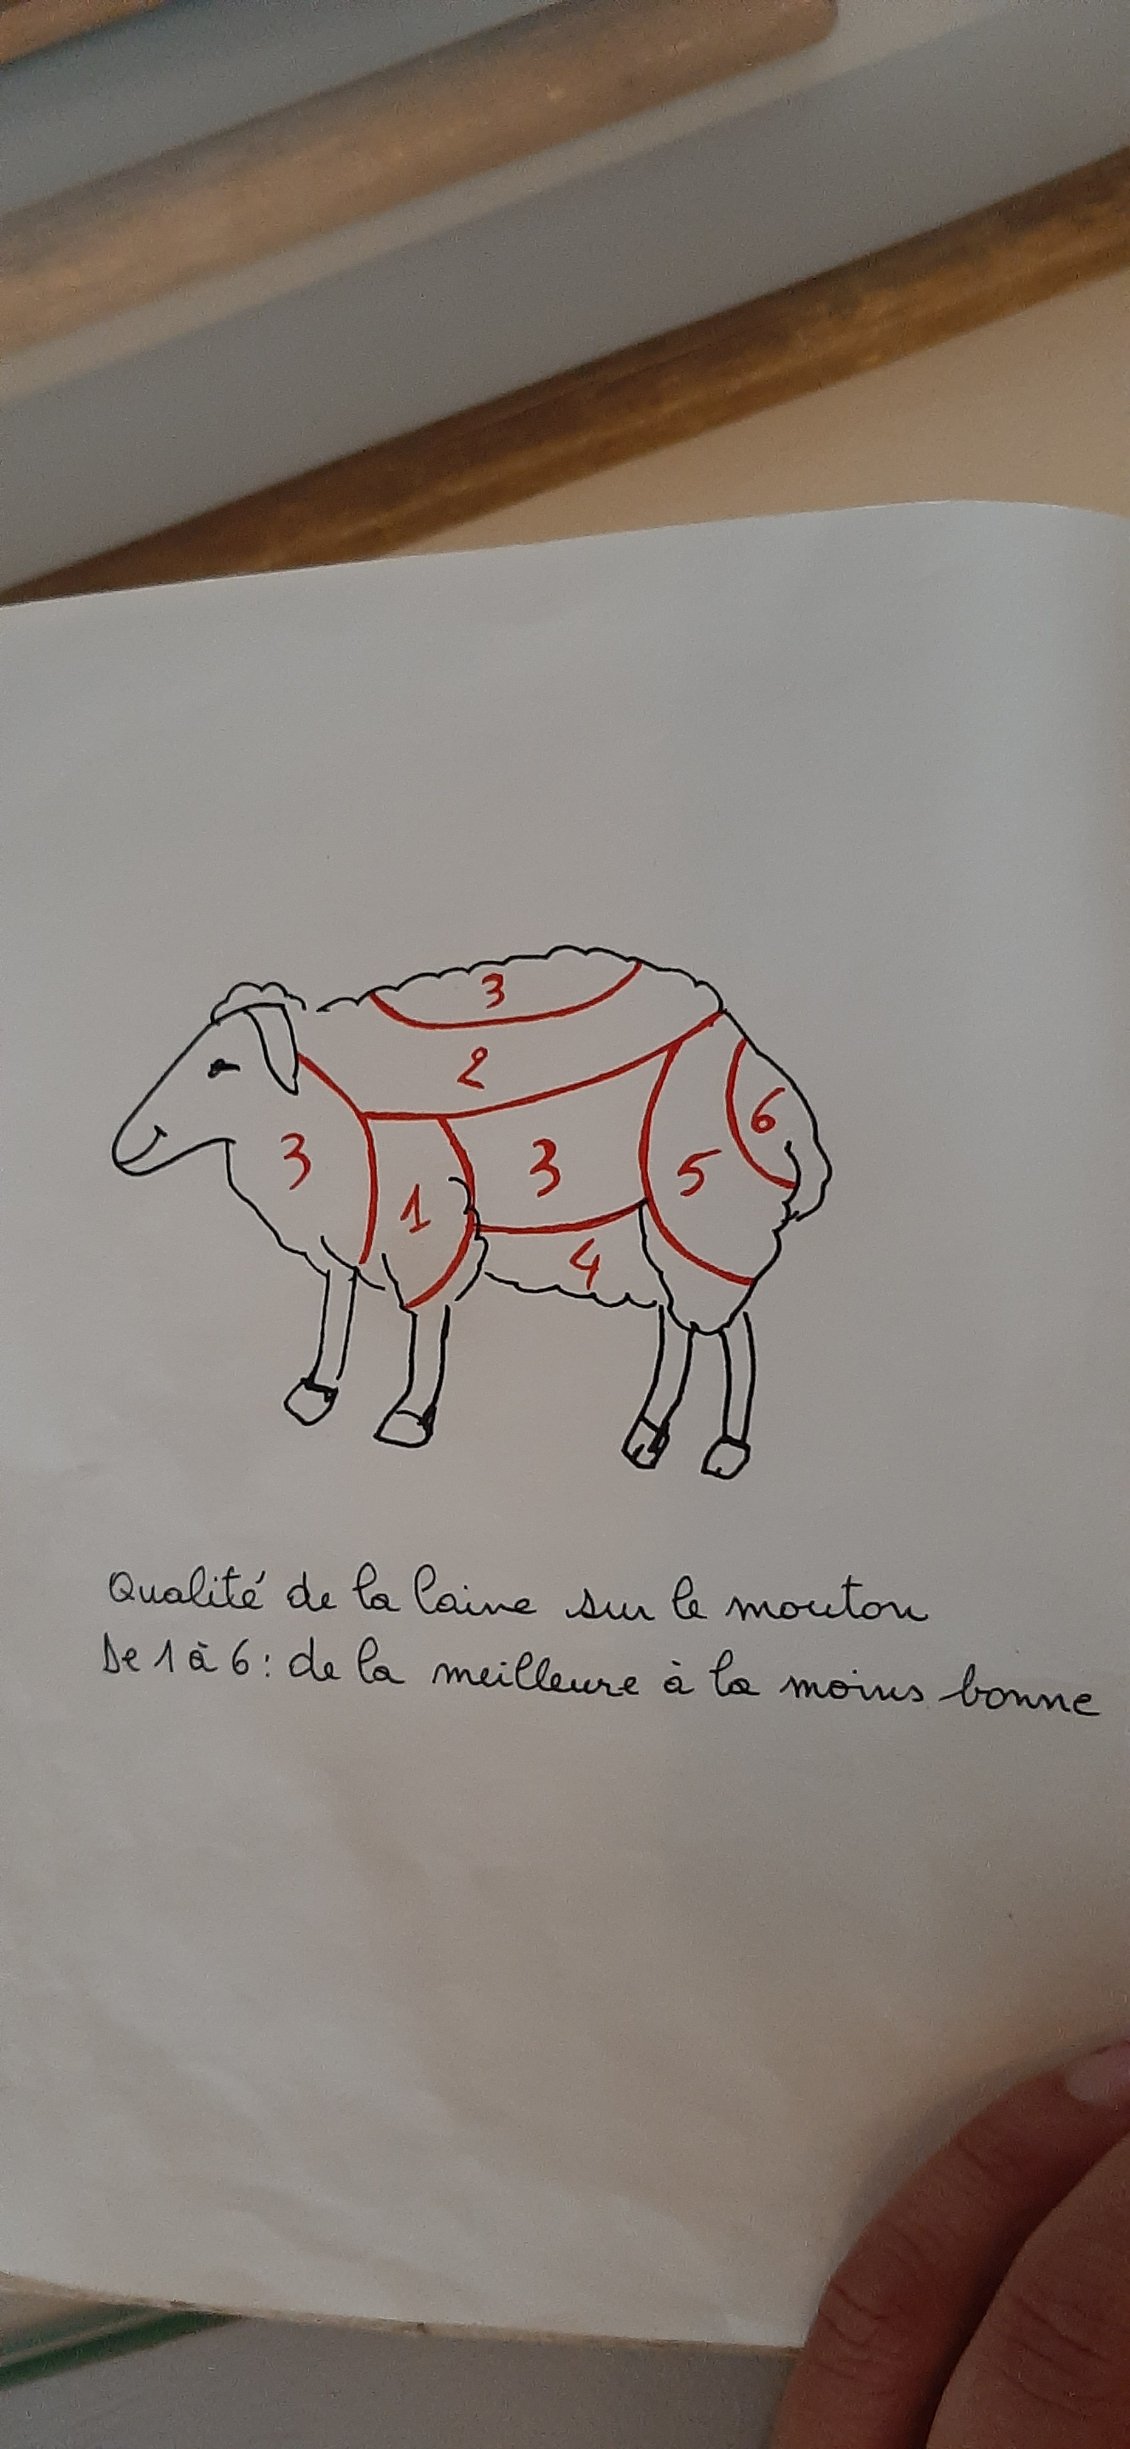 3
2
3
1
3
5
6
4
Qualité de la laine sur le mouton
De 1 à 6 : de la meilleure à la moins bonne